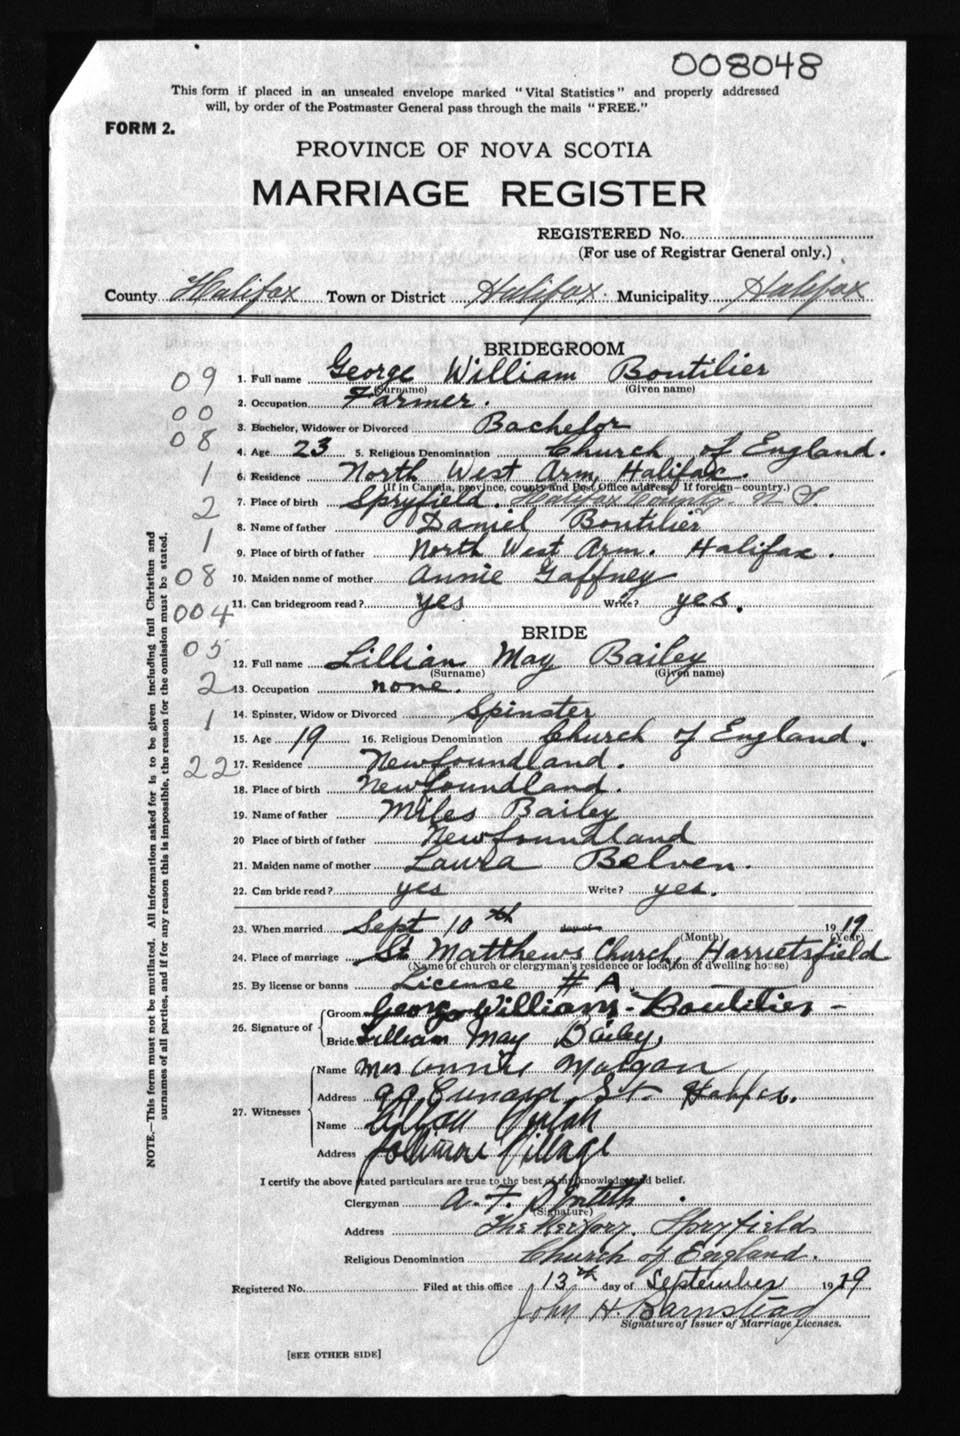 008048
This form if placed in an unsealed envelope marked "Vital Statistics" and properly addressed
will, by order of the Postmaster General pass through the mails "FREE."
FORM 2.
PROVINCE OF NOVA SCOTIA
MARRIAGE REGISTER
REGISTERED No.
(For use of Registrar General only.)
County Halifax Town or District Halifax Municipality Halifax
BRIDEGROOM
09 1. Full name George William Boutilier
(Surname) (Given name)
2. Occupation Farmer.
00 3. Bachelor, Widower or Divorced Bachelor
08 4. Age 23 5. Religious Denomination Church of England.
1 6. Residence North West Arm, Halifax.
(If in Canada, province, county and Post Office address. If foreign-country.)
2 7. Place of birth Spryfield. Halifax County N S.
8. Name of father Daniel Boutilier
1 9. Place of birth of father North West Arm. Halifax.
08 10. Maiden name of mother Annie Gaffney
004 11. Can bridegroom read? yes Write? yes.
BRIDE
05 12. Full name Lillian May Bailey
(Surname) (Given name)
2 13. Occupation none.
1 14. Spinster, Widow or Divorced Spinster
15. Age 19 16. Religious Denomination Church of England.
22 17. Residence Newfoundland.
18. Place of birth Newfoundland.
19. Name of father Miles Bailey
20 Place of birth of father Newfoundland
21. Maiden name of mother Laura Belven.
22. Can bride read? yes Write? yes.
23. When married Sept 10th day of (Month) 1919 (Year)
24. Place of marriage St Matthews Church, Harrietsfield
(Name of church or clergyman's residence or location of dwelling house)
25. By license or banns License # A.
26. Signature of Groom George William Boutilier
Bride Lillian May Bailey
27. Witnesses Name Mrs Annie Morgan
Address 99 Cunard St. Halifax.
Name
Address Jollimore Village
I certify the above stated particulars are true to the best of my knowledge and belief.
Clergyman A. F.
(Signature)
Address The Rectory. Spryfield
Religious Denomination Church of England.
Registered No. Filed at this office 13th day of September 1919
John H. Barnstead
Signature of Issuer of Marriage Licenses.
[SEE OTHER SIDE]
NOTE.—This form must not be mutilated. All information asked for is to be given including full Christian and
surnames of all parties, and if for any reason this is impossible, the reason for the omission must be stated.